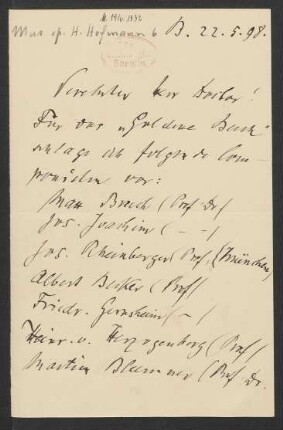 M. 1912.1332
Mus. ep. H. Hofmann 6
B. 22.5.98.
Verehrter Herr Doctor!
Für das "Goldene Buch"
schlage ich folgende Com-
ponisten vor:
Max Bruch (Prof Dr)
Jos. Joachim ( - - )
Jos. Rheinberger (Prof.) (München)
Albert Becker (Prof)
Friedr. Gernsheim ( - )
Heinr. v. Herzogenberg (Prof)
Martin Blumner (Prof Dr.